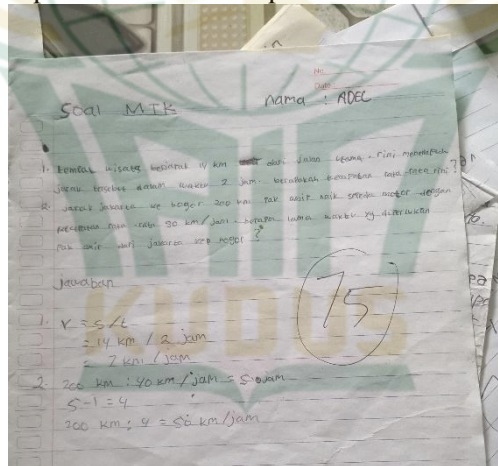 No.
Date
Soal MTK
nama : ADEL
1. tempat wisata berjarak 14 km dari jalan utama. rini menempuh
jarak tersebut dalam waktu 2 jam. berapakah kecepatan rata-rata rini ?
2. jarak jakarta ke bogor 200 km. pak amir naik motor dengan
kecepatan rata-rata 90 km/jam. berapa lama waktu yg diperlukan
pak amir dari jakarta ke bogor ?
jawaban
75
1. V = s/t
= 14 km / 2 jam
= 7 km / jam
2. 200 km : 40 km / jam = 5 jam
5-1 = 4
200 km : 4 = 50 km/jam
IAIN
KUDUS